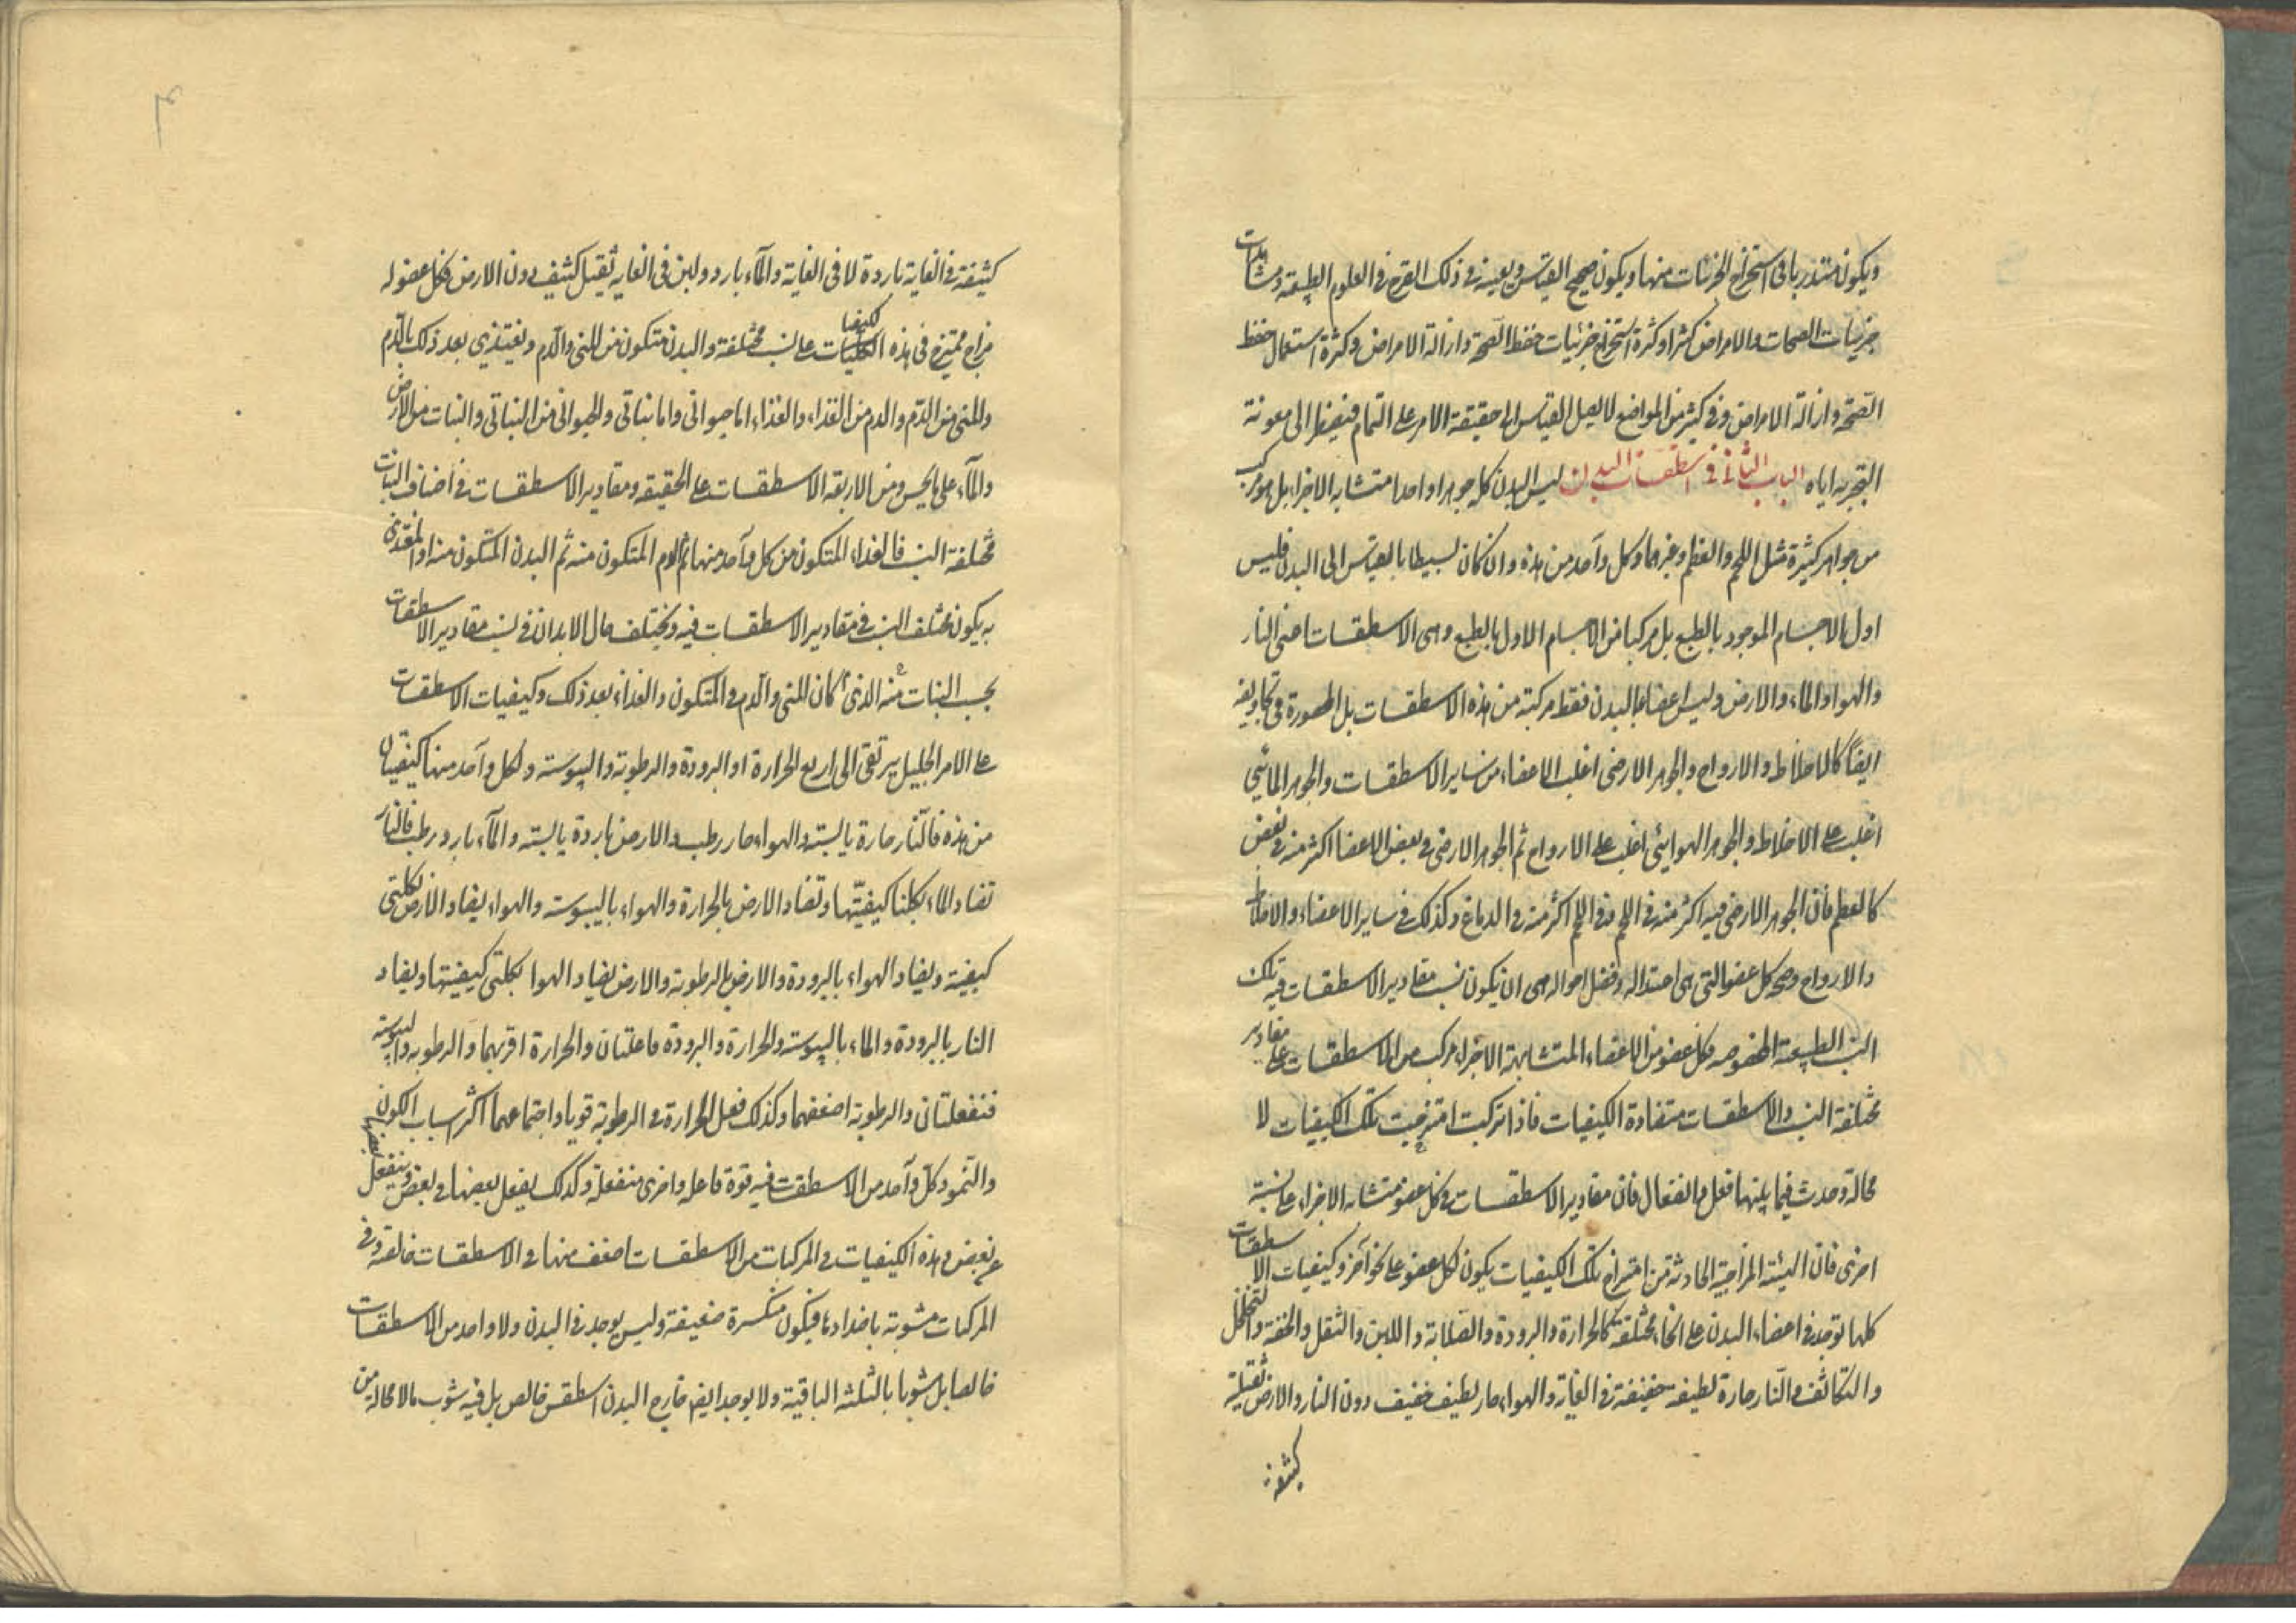 ويكون متدربا فى استخراج الجزئيات منها ويكون صحيح القياس ويعينه فى ذلك القرح فى العلوم الطبيعية ومشاهدات
جزئيات الصحات والامراض كثيرا وكثرة استخراج جزئيات حفظ الصحة وازالة الامراض وكثرة استعمال حفظ
الصحة وازالة الامراض وفى كثير من المواضع لا يصل القياس الى حقيقة الامر على التمام فيضطر الى معونة
التجربه اياه الباب الثانى فى اسطقسات البدن ليس البدن كله جوهرا واحدا متشابه الاجزاء بل هو مركب
من جواهر كثيرة مثل اللحم والعظم وغيرهما وكل واحد من هذه وان كان بسيطا بالقياس الى البدن فليس
اول الاجسام الموجود بالطبع بل مركبا من الاجسام الاول بالطبع وهى الاسطقسات اعنى النار
والهواء والماء والارض وليس اعضاء البدن فقط مركبة من هذه الاسطقسات بل المحصورة فى تجاويفه
ايضا كالاخلاط والارواح والجوهر الارضى اغلب الاعضاء من ساير الاسطقسات والجوهر المائى
اغلب على الاخلاط والجوهر الهوائى اغلب على الارواح ثم الجوهر الارضى فى بعض الاعضا اكثر منه فى بعض
كالعظم فان الجوهر الارضى فيه اكثر منه فى اللحم وفى اللحم اكثر منه فى الدماغ وكذلك فى ساير الاعضاء والاخلاط
والارواح وصحة كل عضو التى هى اعتداله وفضل احواله هى ان يكون نسب مقادير الاسطقسات فيه تلك
النسب الطبيعية المخصوصه فكل عضو من الاعضاء المتشابهة الاجزاء مركب من الاسطقسات على مقادير
مختلفة النسب والاسطقسات متضادة الكيفيات فاذا تركبت امتزجت تلك الكيفيات لا
محالة وحدث فيما بينها فعل وانفعال فان مقادير الاسطقسات فى كل عضو متشابه الاجزاء على نسبة
اخرى فان الهيئة المزاجية الحادثة من امتزاج تلك الكيفيات يكون لكل عضو على نحو آخر وكيفيات الاسطقسات
كلها توجد فى اعضاء البدن على انحاء مختلفة كالحرارة والبرودة والصلابة واللين والثقل والخفة والتخلخل
والتكاثف والنار حارة لطيفة خفيفة فى الغاية والهواء حار لطيف خفيف دون النار والارض ثقيلة
كثيفة
كثيفة فى الغاية باردة لا فى الغاية والماء بارد ولين فى الغاية ثقيل كثيف دون الارض فكل عضو له
مزاج ممتزج فى هذه الكيفيات على نسب مختلفة والبدن متكون من المنى والدم ويغتذى بعد ذلك بالدم
والمنى من الدم والدم من الغذاء والغذاء اما حيوانى واما نباتى والحيوانى من النباتى والنبات من الارض
والماء على الحس ومن الاربعة الاسطقسات على الحقيقة ومقادير الاسطقسات فى اصناف النبات
مختلفة النسب فالغذاء المتكون من كل واحد منها ثم الدم المتكون منه ثم البدن المتكون منه او المغتذى
به يكون مختلف النسب فى مقادير الاسطقسات فيه ويختلف حال الابدان فى نسب مقادير الاسطقسات
بحسب النبات منه الذى كان المنى والدم والمتكون والغذاء بعد ذلك وكيفيات الاسطقسات
على الامر الجليل يرتقى الى اربع الحرارة او البرودة والرطوبة واليبوسة ولكل واحد منها كيفيتان
من هذه فالنار حارة يابسة والهواء حار رطب والارض باردة يابسة والماء بارد رطب فالنار
تضاد الماء بكلتا كيفيتها وتضاد الارض بالحرارة والهواء باليبوسة والهواء يضاد الارض بكلتى
كيفيته ويضاد الهواء بالبرودة والارض بالرطوبة والارض يضاد الهوا بكلتى كيفيتها ويضاد
النار بالبرودة والماء باليبوسة والحرارة والبرودة فاعلتان والحرارة اقويهما والرطوبة واليبوسة
منفعلتان والرطوبة اضعفهما وكذلك فعل الحرارة فى الرطوبة قويا واجتماعهما اكثر اسباب الكون
والنمو وكل واحد من الاسطقسات فيه قوة فاعله واخرى منفعلة وكذلك يفعل بعضها فى بعض وينفعل بعضها
عن بعض وهذه الكيفيات فى المركبات من الاسطقسات اضعف منها فى الاسطقسات خالصة وفى
المركبات مشوبة باضدادها فيكون منكسرة ضعيفة وليس يوجد فى البدن ولا واحد من الاسطقسات
خالصا بل مشوبا بالثلثه الباقية ولا يوجد ايضا خارج البدن اسطقس خالص بل فيه شوب ما لا محالة من